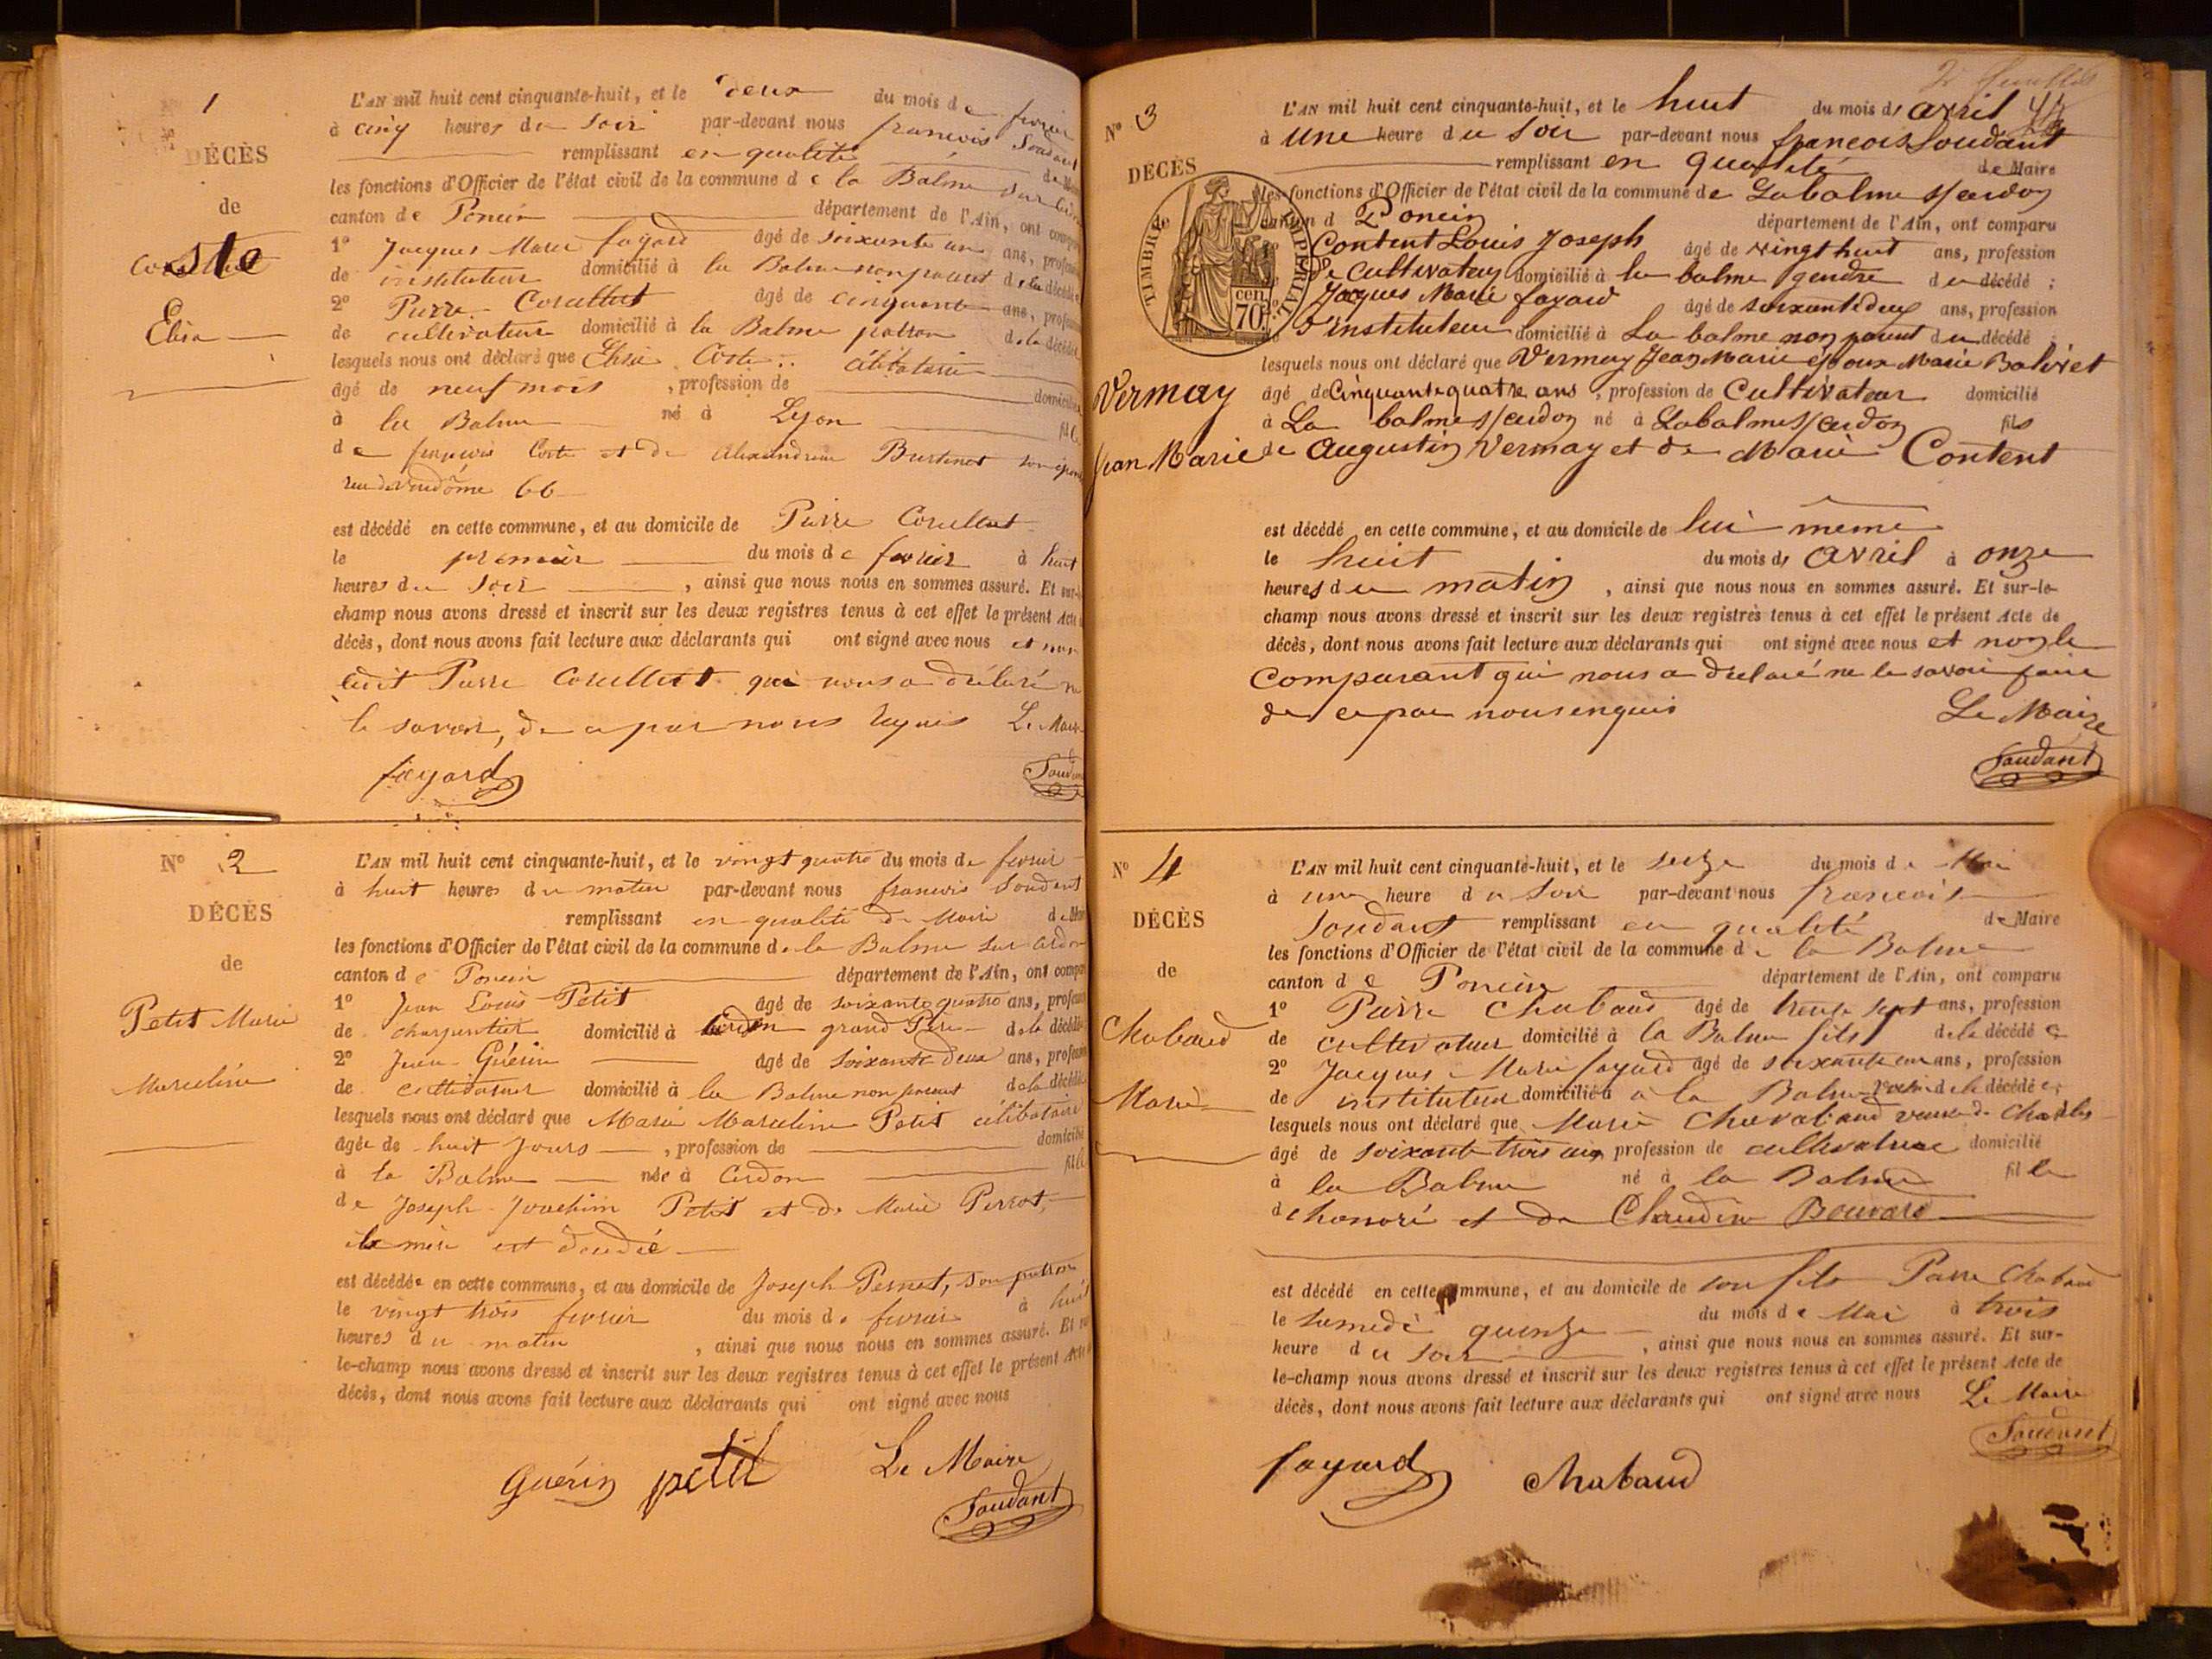 1
DÉCÈS
de
Coste
Elisa
L'AN mil huit cent cinquante-huit, et le deux du mois de février
à cinq heures du soir par-devant nous francois Soudant
remplissant en qualité de Maire
les fonctions d'Officier de l'état civil de la commune de la Balme sur Cerdon
canton de Poncin département de l'Ain, ont comparu
1° Jacques Marie fayard âgé de soixante un ans, profession
de instituteur domicilié à la Balme non parent de la décédée
2° Pierre Corullut âgé de cinquante ans, profession
de cultivateur domicilié à la Balme patron de la décédée
lesquels nous ont déclaré que Coste célibataire
âgé de neuf mois, profession de domicilié
à la Balme né à Lyon fille
de francois Coste et de Alexandrine son épouse
rue de Vendôme 66
est décédé en cette commune, et au domicile de Pierre Corullut
le premier du mois de fevrier à huit
heures du soir, ainsi que nous nous en sommes assuré. Et sur-le-
champ nous avons dressé et inscrit sur les deux registres tenus à cet effet le présent Acte de
décès, dont nous avons fait lecture aux déclarants qui ont signé avec nous et non
ledit Pierre Corullut qui nous a déclaré ne
le savoir, de ce par nous requis Le Maire
fayard Soudant
N° 2
DÉCÈS
de
Petit Marie
Marceline
L'AN mil huit cent cinquante-huit, et le vingt quatre du mois de fevrier
à huit heures du matin par-devant nous francois Soudant
remplissant en qualité de Maire de Maire
les fonctions d'Officier de l'état civil de la commune de la Balme sur Cerdon
canton de Poncin département de l'Ain, ont comparu
1° Jean Louis Petit âgé de soixante quatre ans, profession
de charpentier domicilié à Cerdon grand Père de la décédée
2° Jean Guérin âgé de soixante deux ans, profession
de cultivateur domicilié à la Balme non parent de la décédée
lesquels nous ont déclaré que Marie Marceline Petit célibataire
âgée de huit jours, profession de domicilié
à la Balme née à Cerdon fille
de Joseph Joachim Petit et de Marie Perrot,
la mère est décédée
est décédée en cette commune, et au domicile de Joseph Pernet, son patron
le vingt trois fevrier du mois de fevrier à huit
heures du matin, ainsi que nous nous en sommes assuré. Et sur-
le-champ nous avons dressé et inscrit sur les deux registres tenus à cet effet le présent Acte de
décès, dont nous avons fait lecture aux déclarants qui ont signé avec nous
Guérin petit Le Maire
Soudant
N° 3
DÉCÈS
TIMBRE IMPERIAL
70 cen
Vermay
Jean Marie
L'AN mil huit cent cinquante-huit, et le huit du mois de avril
à une heure du soir par-devant nous francois Soudant
remplissant en qualité de Maire
les fonctions d'Officier de l'état civil de la commune de Labalme s/cerdon
canton d Poncin département de l'Ain, ont comparu
Content Louis Joseph âgé de vingt huit ans, profession
de cultivateur domicilié à la balme gendre du décédé ;
Jacques Marie fayard âgé de soixante deux ans, profession
d'instituteur domicilié à La balme non parent du décédé
lesquels nous ont déclaré que Vermay Jean Marie époux Marie Balivet
âgé de Cinquante quatre ans, profession de Cultivateur domicilié
à La balme s/cerdon né à Labalme s/cerdon fils
de Augustin Vermay et de Marie Content
est décédé en cette commune, et au domicile de lui même
le huit du mois de avril à onze
heures du matin, ainsi que nous nous en sommes assuré. Et sur-le-
champ nous avons dressé et inscrit sur les deux registres tenus à cet effet le présent Acte de
décès, dont nous avons fait lecture aux déclarants qui ont signé avec nous et non le
comparant qui nous a declaré ne le savoir faire
de ce par nous enquis Le Maire
Soudant
N° 4
DÉCÈS
de
Chabaud
Marie
L'AN mil huit cent cinquante-huit, et le seize du mois de Mai
à une heure du soir par-devant nous francois
Soudant remplissant en qualité de Maire
les fonctions d'Officier de l'état civil de la commune de la Balme
canton de Poncin département de l'Ain, ont comparu
1° Pierre Chabaud âgé de trente sept ans, profession
de cultivateur domicilié à la Balme fils de la décédée
2° Jacques Marie fayard âgé de soixante un ans, profession
de instituteur domicilié à à la Balme voisin de la décédée;
lesquels nous ont déclaré que Marie Chavabaud veuve de Charles
âgé de soixante trois ans profession de cultivatrice domicilié
à la Balme né à la Balme fille
de honoré et de Claudine Bouvard
est décédé en cette commune, et au domicile de son fils Pierre Chabaud
le samedi quinze du mois de Mai à trois
heure du soir, ainsi que nous nous en sommes assuré. Et sur-
le-champ nous avons dressé et inscrit sur les deux registres tenus à cet effet le présent Acte de
décès, dont nous avons fait lecture aux déclarants qui ont signé avec nous Le Maire
Soudant
fayard Chabaud